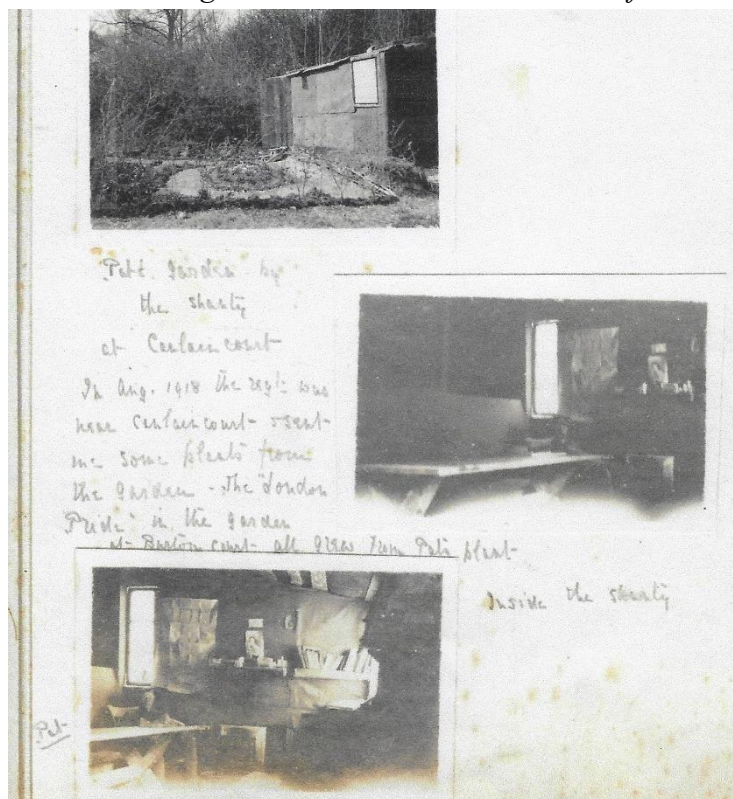 Pat's garden by
the shanty
at Caulaincourt
In Aug. 1918 the regt. was
near Caulaincourt - & sent
me some plants from
the garden - The "London
Pride" in the garden
at Burton Court all grew from Pat's plant
Inside the shanty
Pat